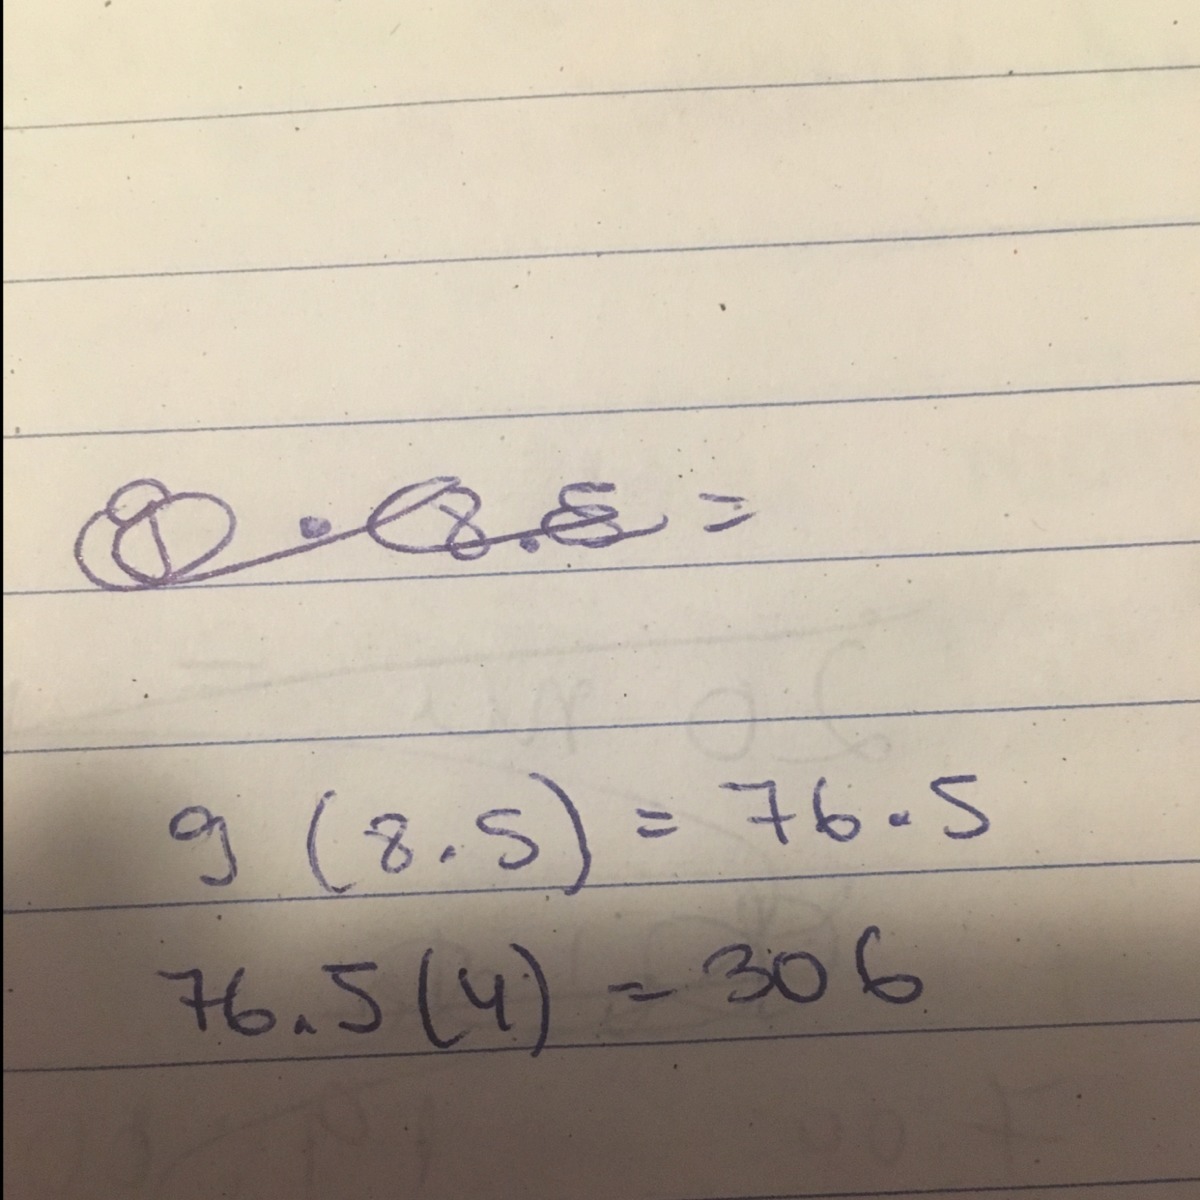 9(8.5) = 76.5
76.5(4) = 306